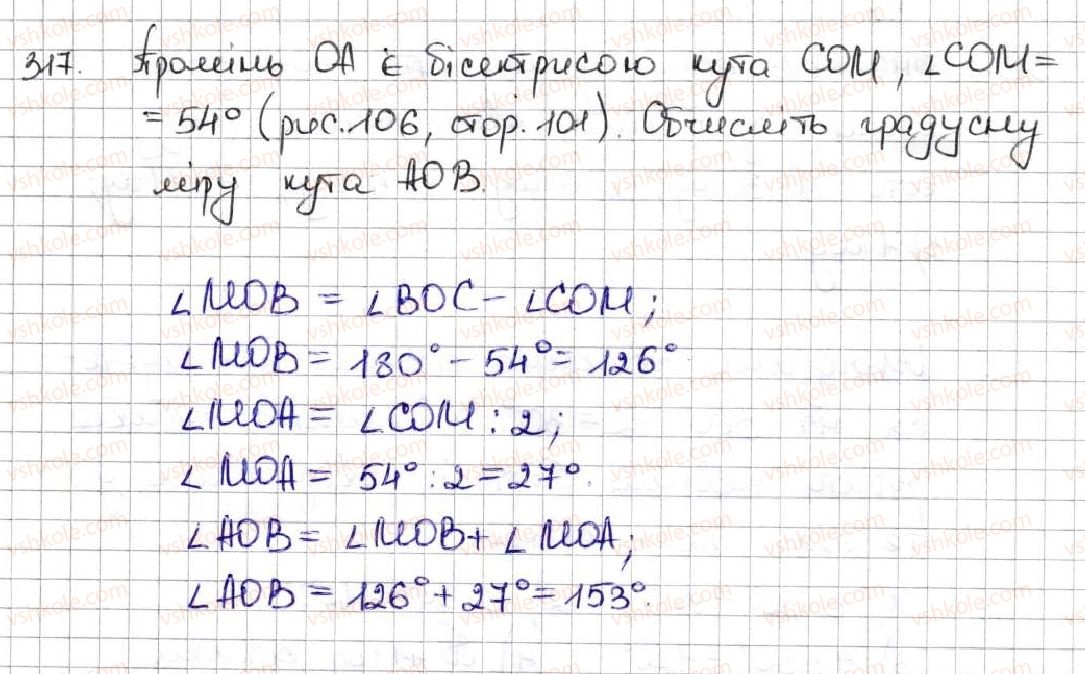 317. Промінь OA є бісектрисою кута COM, ∠COM=
= 54° (рис.106, стор.101). Обчисліть градусну
міру кута AOB.
∠MOB = ∠BOC - ∠COM;
∠MOB = 180° - 54° = 126°
∠MOA = ∠COM : 2;
∠MOA = 54° : 2 = 27°.
∠AOB = ∠MOB + ∠MOA;
∠AOB = 126° + 27° = 153°.
vshkole.com